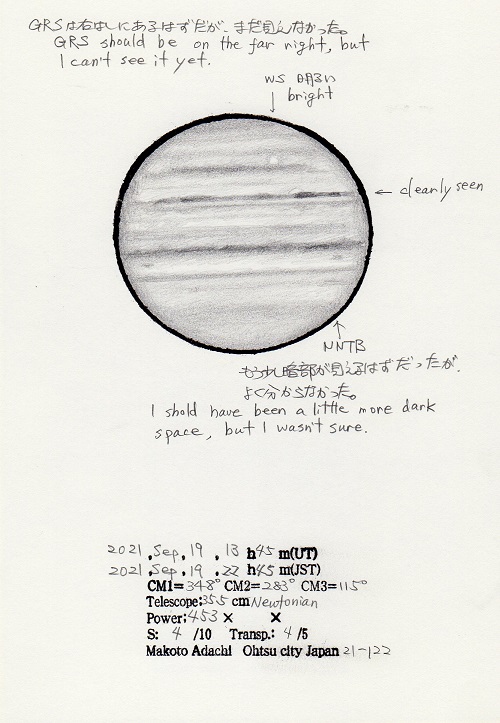 GRSは右はしにあるはずだが、まだ見えなかった。
GRS should be on the far right, but
I can't see it yet.
WS 明るい
bright
← clearly seen
NNTB
もう少し暗部が見えるはずだったが、
よく分からなかった。
I shold have been a little more dark
space, but I wasn't sure.
2021, Sep, 19, 13 h 45 m(UT)
2021, Sep, 19, 22 h 45 m(JST)
CM1=348° CM2=283° CM3=115°
Telescope:355 cm Newtonian
Power:453× ×
S: 4 /10 Transp.: 4 /5
Makoto Adachi Ohtsu city Japan 21-122